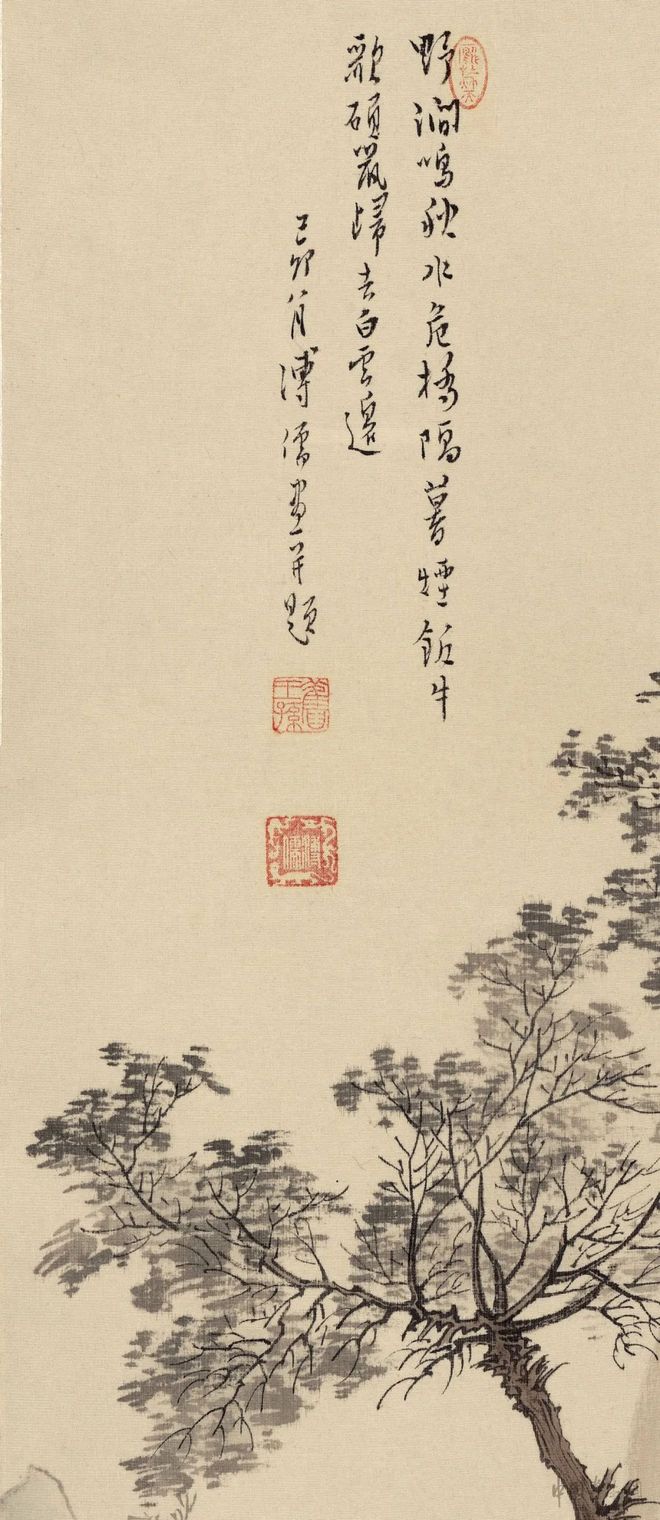 野澗鳴秋水危橋隔暮煙飯牛
歌碩鼠歸去白雲邊
己卯八月溥儒畫并題
舊王孫
溥儒